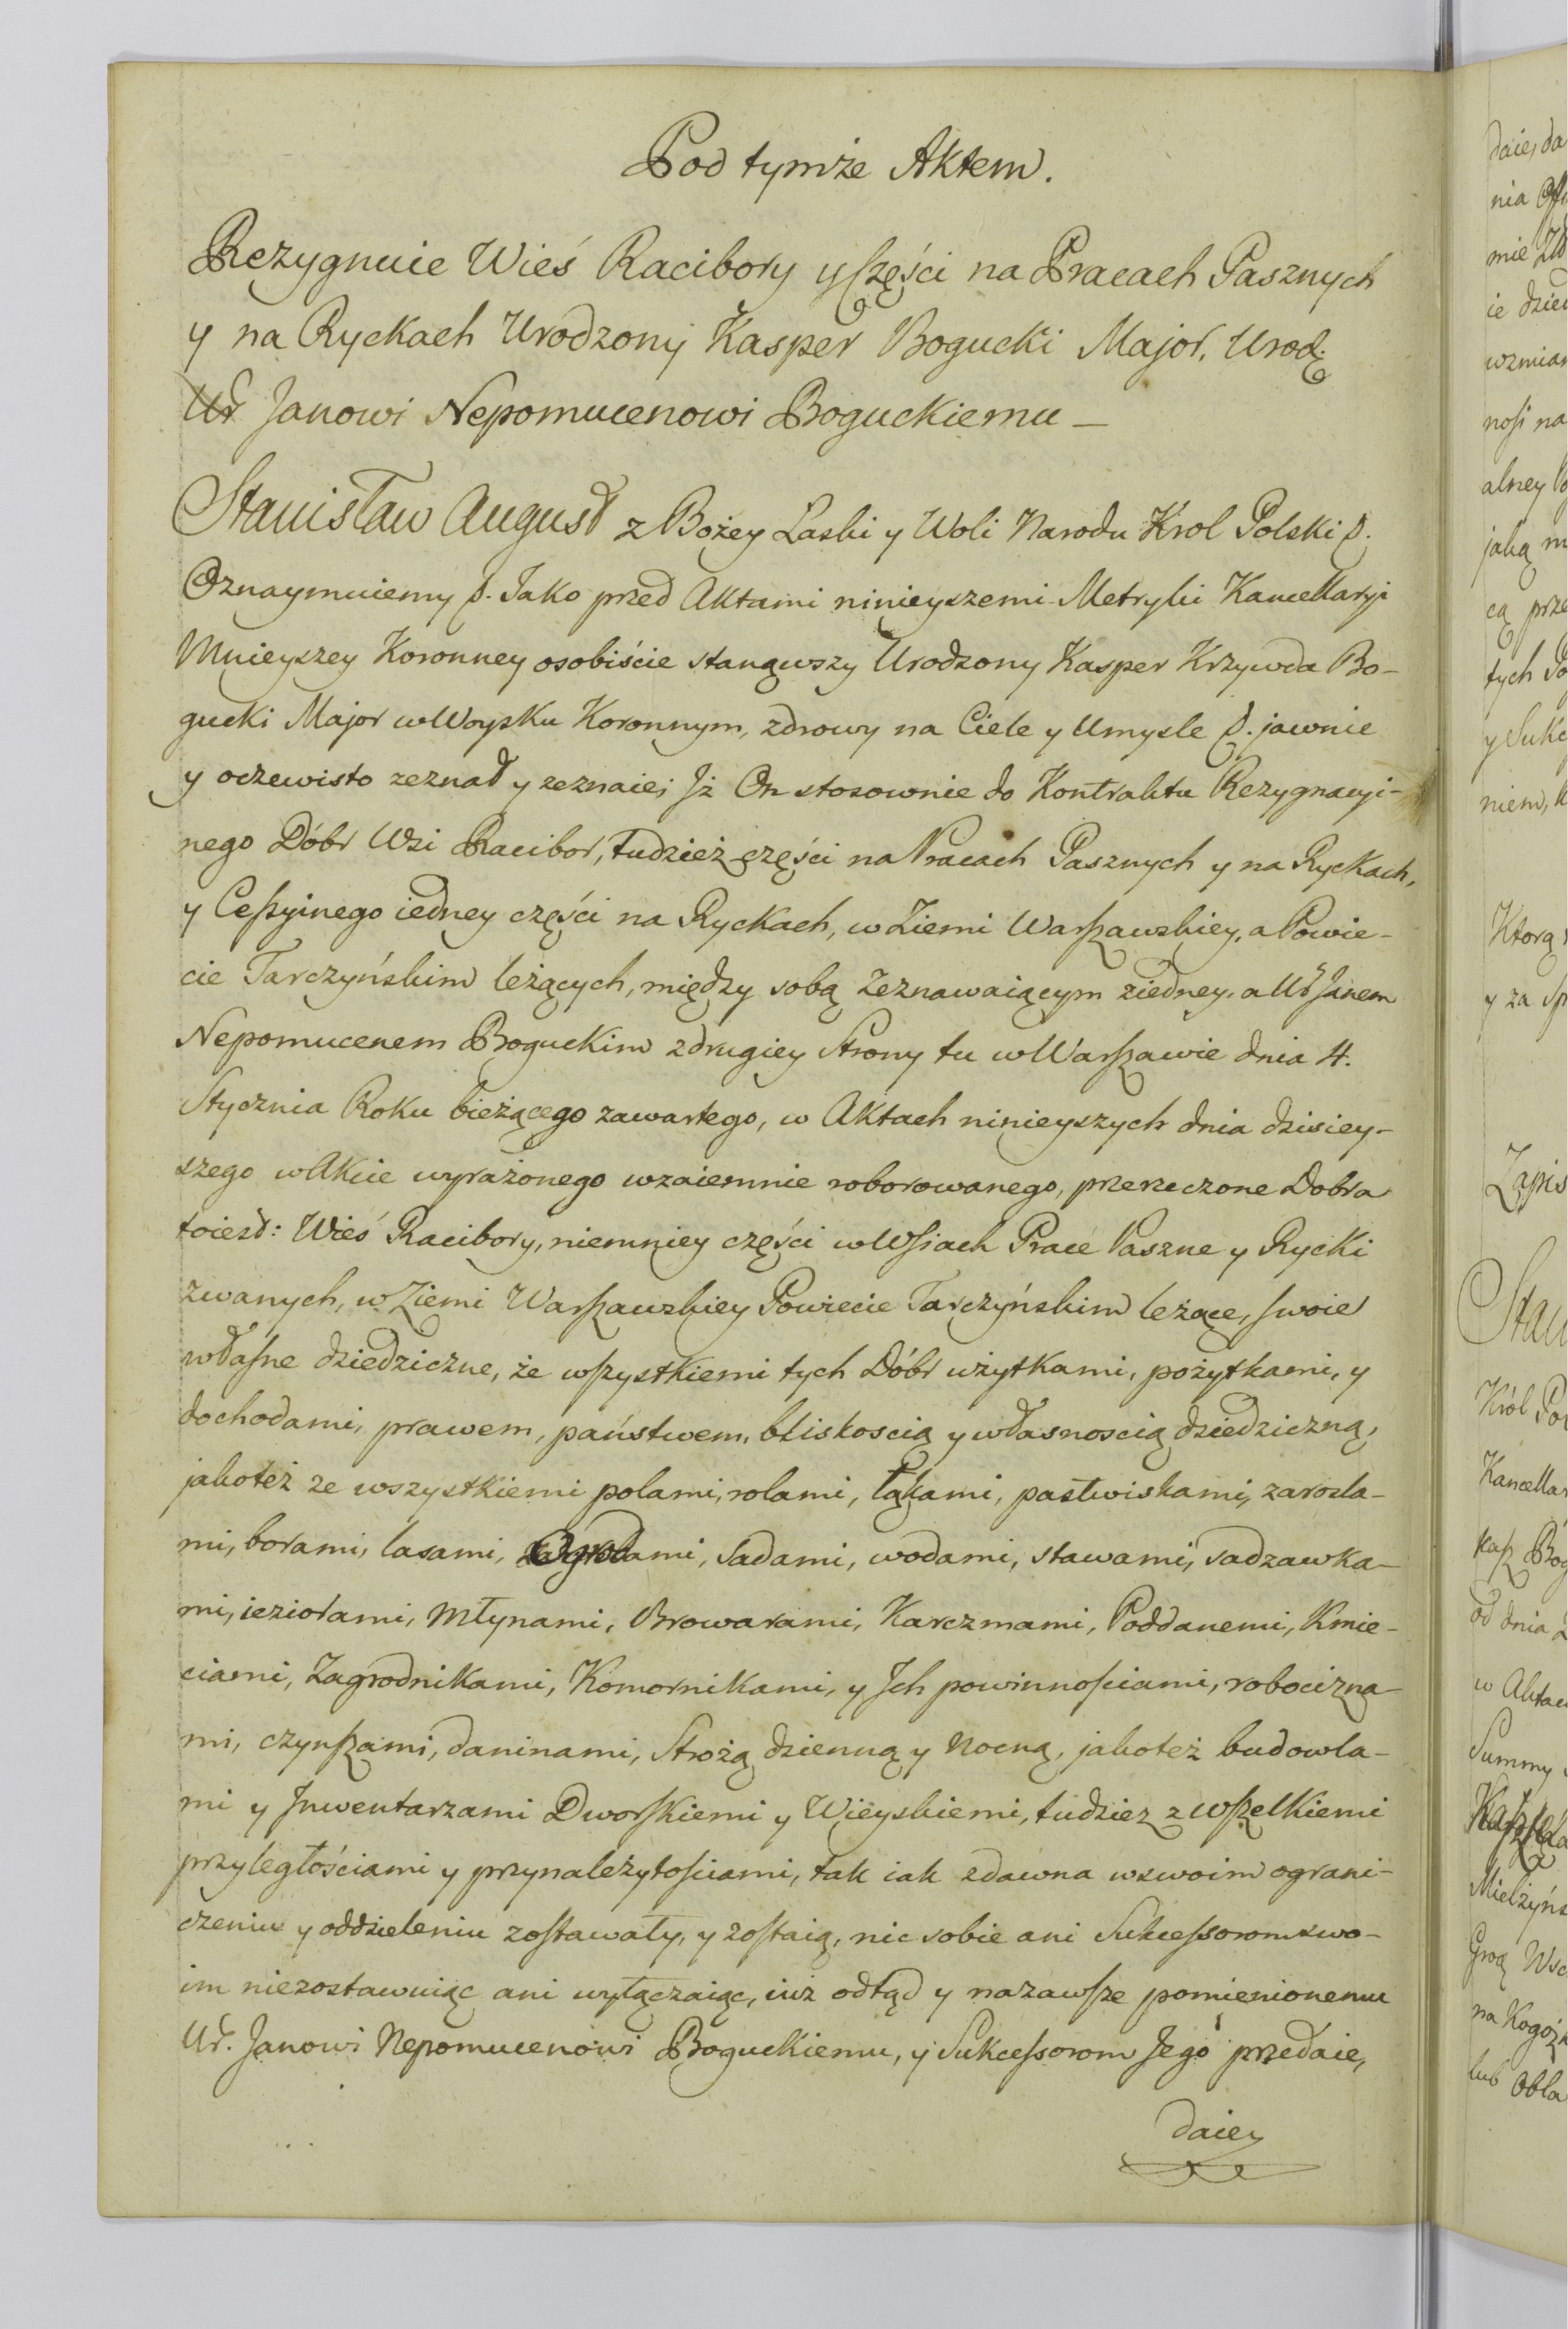 Pod tymże Aktem.
Rezygnuie Wieś Racibory y części na Pracach Pasznych
y na Ryckach Urodzony Kasper Bogucki Major, Urodz.
Ur Janowi Nepomucenowi Boguckiemu —
Stanisław August z Bożey Laski y Woli Narodu Krol Polski &.
Oznaymuiemy &. Jako przed Aktami ninieyszemi Metryki Kancellaryi
Mnieyszey Koronney osobiście stanąwszy Urodzony Kasper Krzywda Bo-
gucki Major w Woysku Koronnym, zdrowy na Ciele y Umysle &. jawnie
y oczewisto zeznał y zeznaie; Jż On stosownie do Kontraktu Rezygnacyi-
nego Dóbr Wsi Racibor, tudzież części na Pracach Pasznych y na Ryckach,
y Cessyinego iedney części na Ryckach, w Ziemi Warszawskiey, a Powie-
cie Tarczyńskim leżących, między sobą Zeznawaiącym z iedney, a Ur Janem
Nepomucenem Boguckim z drugiey Strony tu w Warszawie dnia 4.
Stycznia Roku bieżącego zawartego, w Aktach ninieyszych dnia dzisiey-
szego w Akcie wyrażonego wzaiemnie roborowanego, przerzeczone Dobra
toiest: Wieś Racibory, niemniey części w Wsiach Prace Paszne y Rycki
zwanych, w Ziemi Warszawskiey Powiecie Tarczyńskim leżące, swoie
własne dziedziczne, że wszystkiemi tych Dóbr użytkami, pożytkami, y
dochodami, prawem, państwem, bliskoscią y własnoscią dziedziczną,
jakoteż ze wszystkiemi polami, rolami, łąkami, pastwiskami, zarosla-
mi, borami, lasami, Ogrodami, Sadami, wodami, stawami, sadzawka-
mi, ieziorami, Młynami, Browarami, Karczmami, Poddanemi, Kmie-
ciami, Zagrodnikami, Komornikami, y Jch powinnościami, robocizna-
mi, czynszami, daninami, Strożą dzienną y Nocną, jakoteż budowla-
mi y Jnwentarzami Dworskiemi y Wieyskiemi, tudziez z wszelkiemi
przyległościami y przynależytościami, tak iak zdawna w swoim ograni-
czeniu y oddzieleniu zostawały, y zostaią, nic sobie ani Sukcessorom swo-
im niezostawuiąc ani wyłączaiąc, iuż odtąd y nazawsze pomienionemu
Ur. Janowi Nepomucenowi Boguckiemu, y Sukcessorom Jego przedaie,
daie,